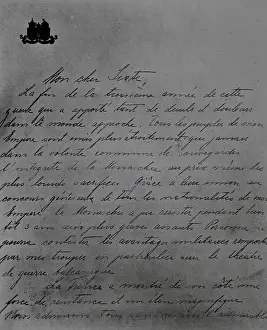 Mon cher Sixte,
La fin de la troisième année de cette
guerre qui a apporté tant de deuils et douleurs
dans le monde approche. Tous les peuples de mon
Empire sont unis plus étroitement que jamais
dans la volonté commune de sauvegarder
l'intégrité de la Monarchie au prix même des
plus lourds sacrifices. Grâce à leur union au
concours généreux de tous les nationalités de mon
Empire la Monarchie a pu résister pendant bientôt
3 ans aux plus graves assauts. Personne ne
pourra contester les avantages militaires remportés
par mes troupes en particulier sur le théâtre
de guerre balcanique.
La France a montré de son côté une
force de résistance et un élan magnifique
Nous admirons tous sans